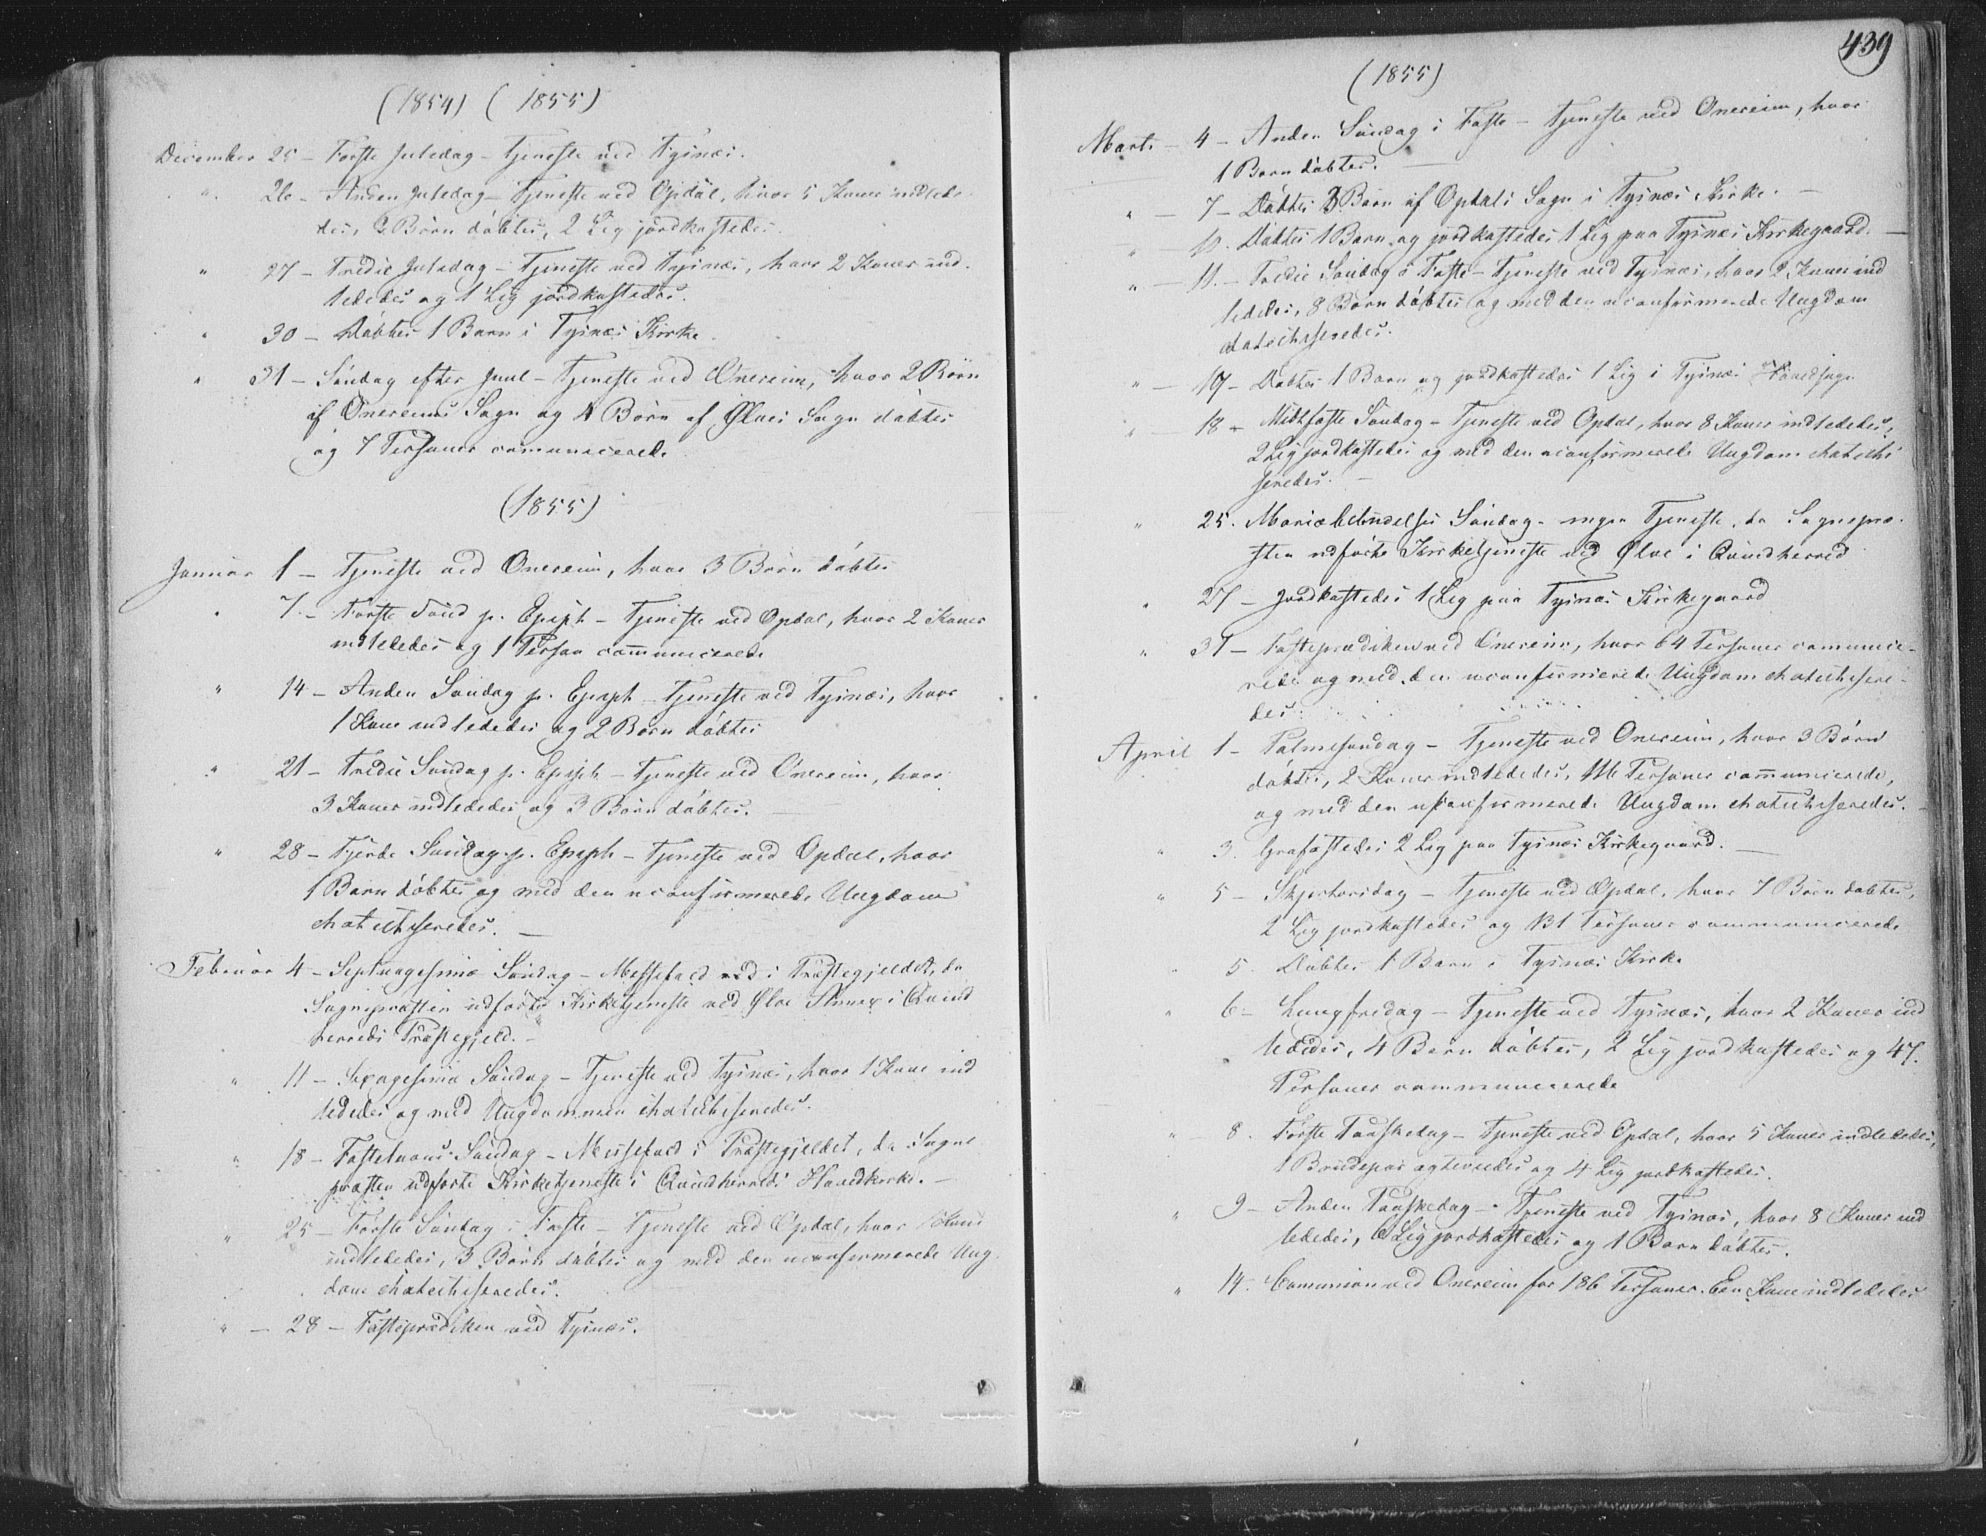 (1854) (1855)
December 25 – Første Juledag – Tjeneste ved Tysnæs.
" 26 – Anden Juledag – Tjeneste ved Opdal, hvor 5 Koner indlede
des, 2 Börn döbtes, 2 Lig jordkastedes.
" 27 – Tredie Juledag – Tjeneste ved Tysnæs, hvor 2 Koner ind
lededes og 1 Lig jordkastedes.
" 30 – Döbtes 1 Barn i Tysnæs Kirke.
" 31 – Söndag efter Juul – Tjeneste ved Onereim, hvor 2 Börn
af Onereims Sogn og 4 Börn af Ølves Sogn döbtes
og 7 Personer communicerede.
(1855)
Januar 1 – Tjeneste ved Onereim, hvor 3 Börn döbtes
" 7 – Første Sönd p. Epiph – Tjeneste ved Opdal, hvor 2 Koner
indlededes og 1 Person communicerede.
" 14 – Anden Söndag p. Epiph – Tjeneste ved Tysnæs, hvor
1 Kone indlededes og 2 Börn döbtes
" 21 – Tredie Söndag p. Epiph – Tjeneste ved Onereim, hvor
3 Koner indlededes og 3 Börn döbtes. –
" 28 – Fjerde Söndag p. Epiph – Tjeneste ved Opdal, hvor
1 Barn döbtes og med den uconfirmerede Ungdom
chatechiseredes. –
Februar 4 – Septuagesima Söndag – Messefald i Præstegjeldet, da
Sognepræsten udførte Kirketjeneste ved Ølve Annex i Qvind
herreds Præstegjeld. –
" 11 – Sexagesima Söndag – Tjeneste ved Tysnæs, hvor 1 Kone ind
lededes og med Ungdommen chatechiseredes.
" 18 – Fastelavns Söndag – Messefald i Præstegjeldet, da Sogne
præsten udførte Kirketjeneste i Qvindherreds Hovedkirke. –
" 25 – Første Söndag i Faste – Tjeneste ved Opdal, hvor 1 Kone
indlededes, 3 Börn döbtes og med den uconfirmerede Ung
dom chatechiseredes.
" – 28 – Fasteprædiken ved Tysnæs.
439
(1855)
Marts – 4 – Anden Söndag i Faste – Tjeneste ved Onereim, hvor
1 Barn döbtes.
" – 7 – Döbtes 3 Barn af Opdals Sogn i Tysnæs Kirke. –
" 10. Döbtes 1 Barn og jordkastedes 1 Lig paa Tysnæs Kirkegaard. –
" – 11. – Tredie Söndag i Faste – Tjeneste ved Tysnæs, hvor 2 Koner ind
lededes, 8 Börn döbtes og med den uconfirmerede Ungdom
chatechiseredes.
" – 17 – Döbtes 1 Barn og jordkastedes 1 Lig i Tysnæs Hovedsogn
" – 18 – Midtfaste Söndag – Tjeneste ved Opdal, hvor 8 Koner indlededes,
2 Lig jordkastedes og med den uconfirmerede Ungdom chatechi
seredes. –
" 25. Mariæbebudelses Söndag – ingen Tjeneste, da Sognepræ-
sten udførte Kirketjeneste ved Ølve i Qvindherred
" 27 – Jordkastedes 1 Lig paa Tysnæs Kirkegaard
" 31 – Fasteprædiken ved Onereim, hvor 64 Personer communice-
rede og med den uconfirmerede Ungdom chatechisere-
des.
April 1 – Palmesöndag – Tjeneste ved Onereim, hvor 3 Börn
döbtes, 2 Koner indlededes, 116 Personer communicerede,
og med den uconfirmerede Ungdom chatechiseredes. –
" 3. Grafästedes 2 Lig paa Tysnæs Kirkegaard. –
" 5 – Skjertorsdag – Tjeneste ved Opdal, hvor 7 Börn döbtes,
2 Lig jordkastedes og 131 Personer communicerede
" 5. Döbtes 1 Barn i Tysnæs Kirke
" 6 – Langfredag – Tjeneste ved Tysnæs, hvor 2 Koner ind
lededes, 4 Börn döbtes, 2 Lig jordkastedes og 47
Personer communicerede
" – 8. Første Paaskedag – Tjeneste ved Opdal, hvor 5 Koner indlededes,
1 Brudepar egteviedes og 4 Lig jordkastedes.
" 9 – Anden Paaskedag – Tjeneste ved Tysnæs, hvor 8 Koner ind
lededes, 6 Lig jordkastedes og 1 Barn döbtes.
" 14. Comunion ved Onereim for 186 Personer. Een Kone indlededes